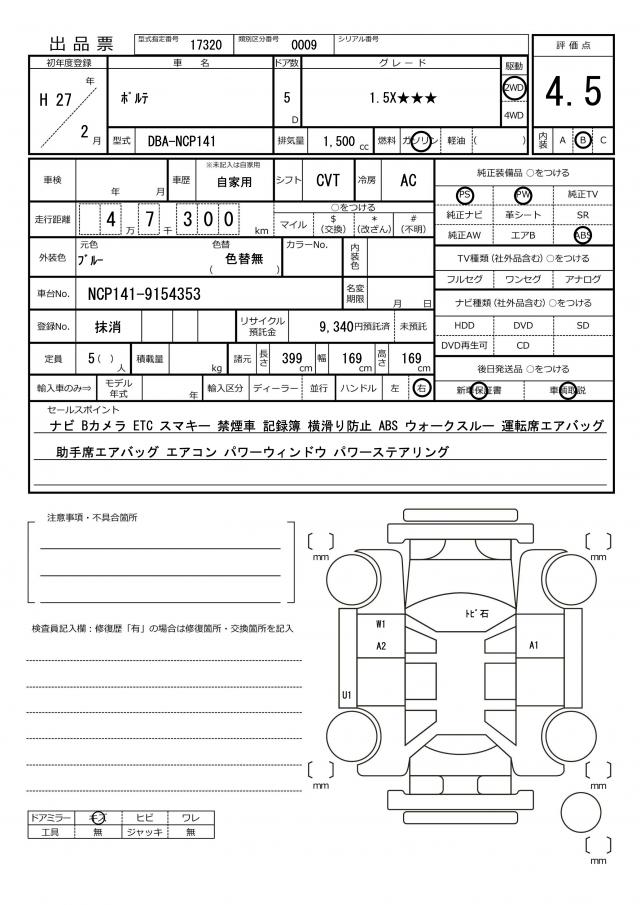 出品票 型式指定番号 17320 類別区分番号 0009 シリアル番号
評価点
4.5
内装 A B C
初年度登録 車名 ドア数 グレード 駆動
H 27 年 2 月 ﾎﾟﾙﾃ 5 D 1.5X★★★ 2WD 4WD
型式 DBA-NCP141 排気量 1,500 cc 燃料 ガソリン 軽油 ( )
車検 年 月 車歴 ※未記入は自家用 自家用 シフト CVT 冷房 AC
走行距離 4 万 7 千 3 0 0 km
○をつける
マイル $ (交換) * (改ざん) # (不明)
外装色 元色 ﾌﾞﾙｰ 色替 ( 色替無 ) カラーNo. 内装色
車台No. NCP141-9154353 名変期限 月 日
登録No. 抹消 リサイクル預託金 9,340円預託済 未預託
定員 5( ) 人 積載量 kg 諸元 長さ 399 cm 幅 169 cm 高さ 169 cm
輸入車のみ⇒ モデル年式 年 輸入区分 ディーラー 並行 ハンドル 左 右
純正装備品 ○をつける
PS PW 純正TV
純正ナビ 革シート SR
純正AW エアB ABS
TV種類 (社外品含む) ○をつける
フルセグ ワンセグ アナログ
ナビ種類 (社外品含む) ○をつける
HDD DVD SD
DVD再生可 CD
後日発送品 ○をつける
新車保証書 車輌取説
セールスポイント
ナビ Bカメラ ETC スマキー 禁煙車 記録簿 横滑り防止 ABS ウォークスルー 運転席エアバッグ
助手席エアバッグ エアコン パワーウィンドウ パワーステアリング
注意事項・不具合箇所
検査員記入欄：修復歴「有」の場合は修復箇所・交換箇所を記入
ドアミラー キズ ヒビ ワレ
工具 無 ジャッキ 無
mm
mm
ﾄﾋﾞ石
W1
A2
A1
U1
mm
mm
mm